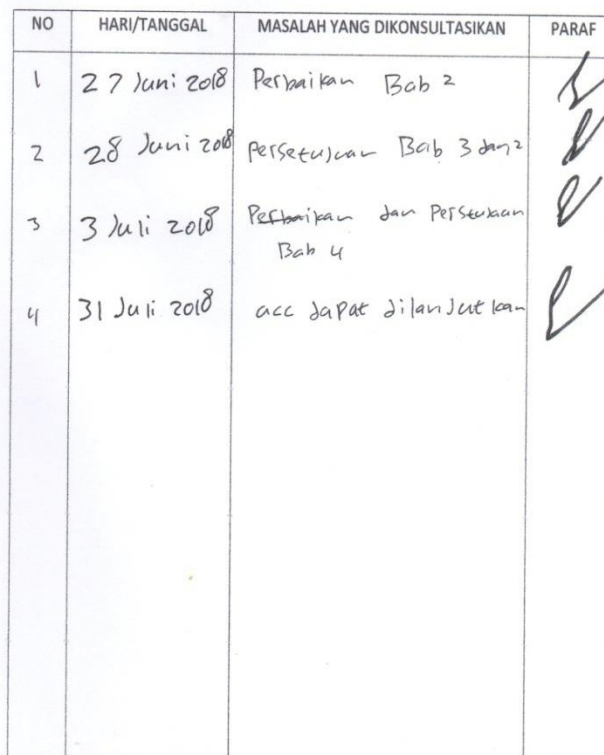 NO HARI/TANGGAL MASALAH YANG DIKONSULTASIKAN PARAF
1 27 Juni 2018 Perbaikan Bab 2
2 28 Juni 2018 Persetujuan Bab 3 dan 2
3 3 Juli 2018 Perbaikan dan Persetujuan
Bab 4
4 31 Juli 2018 acc dapat dilanjutkan